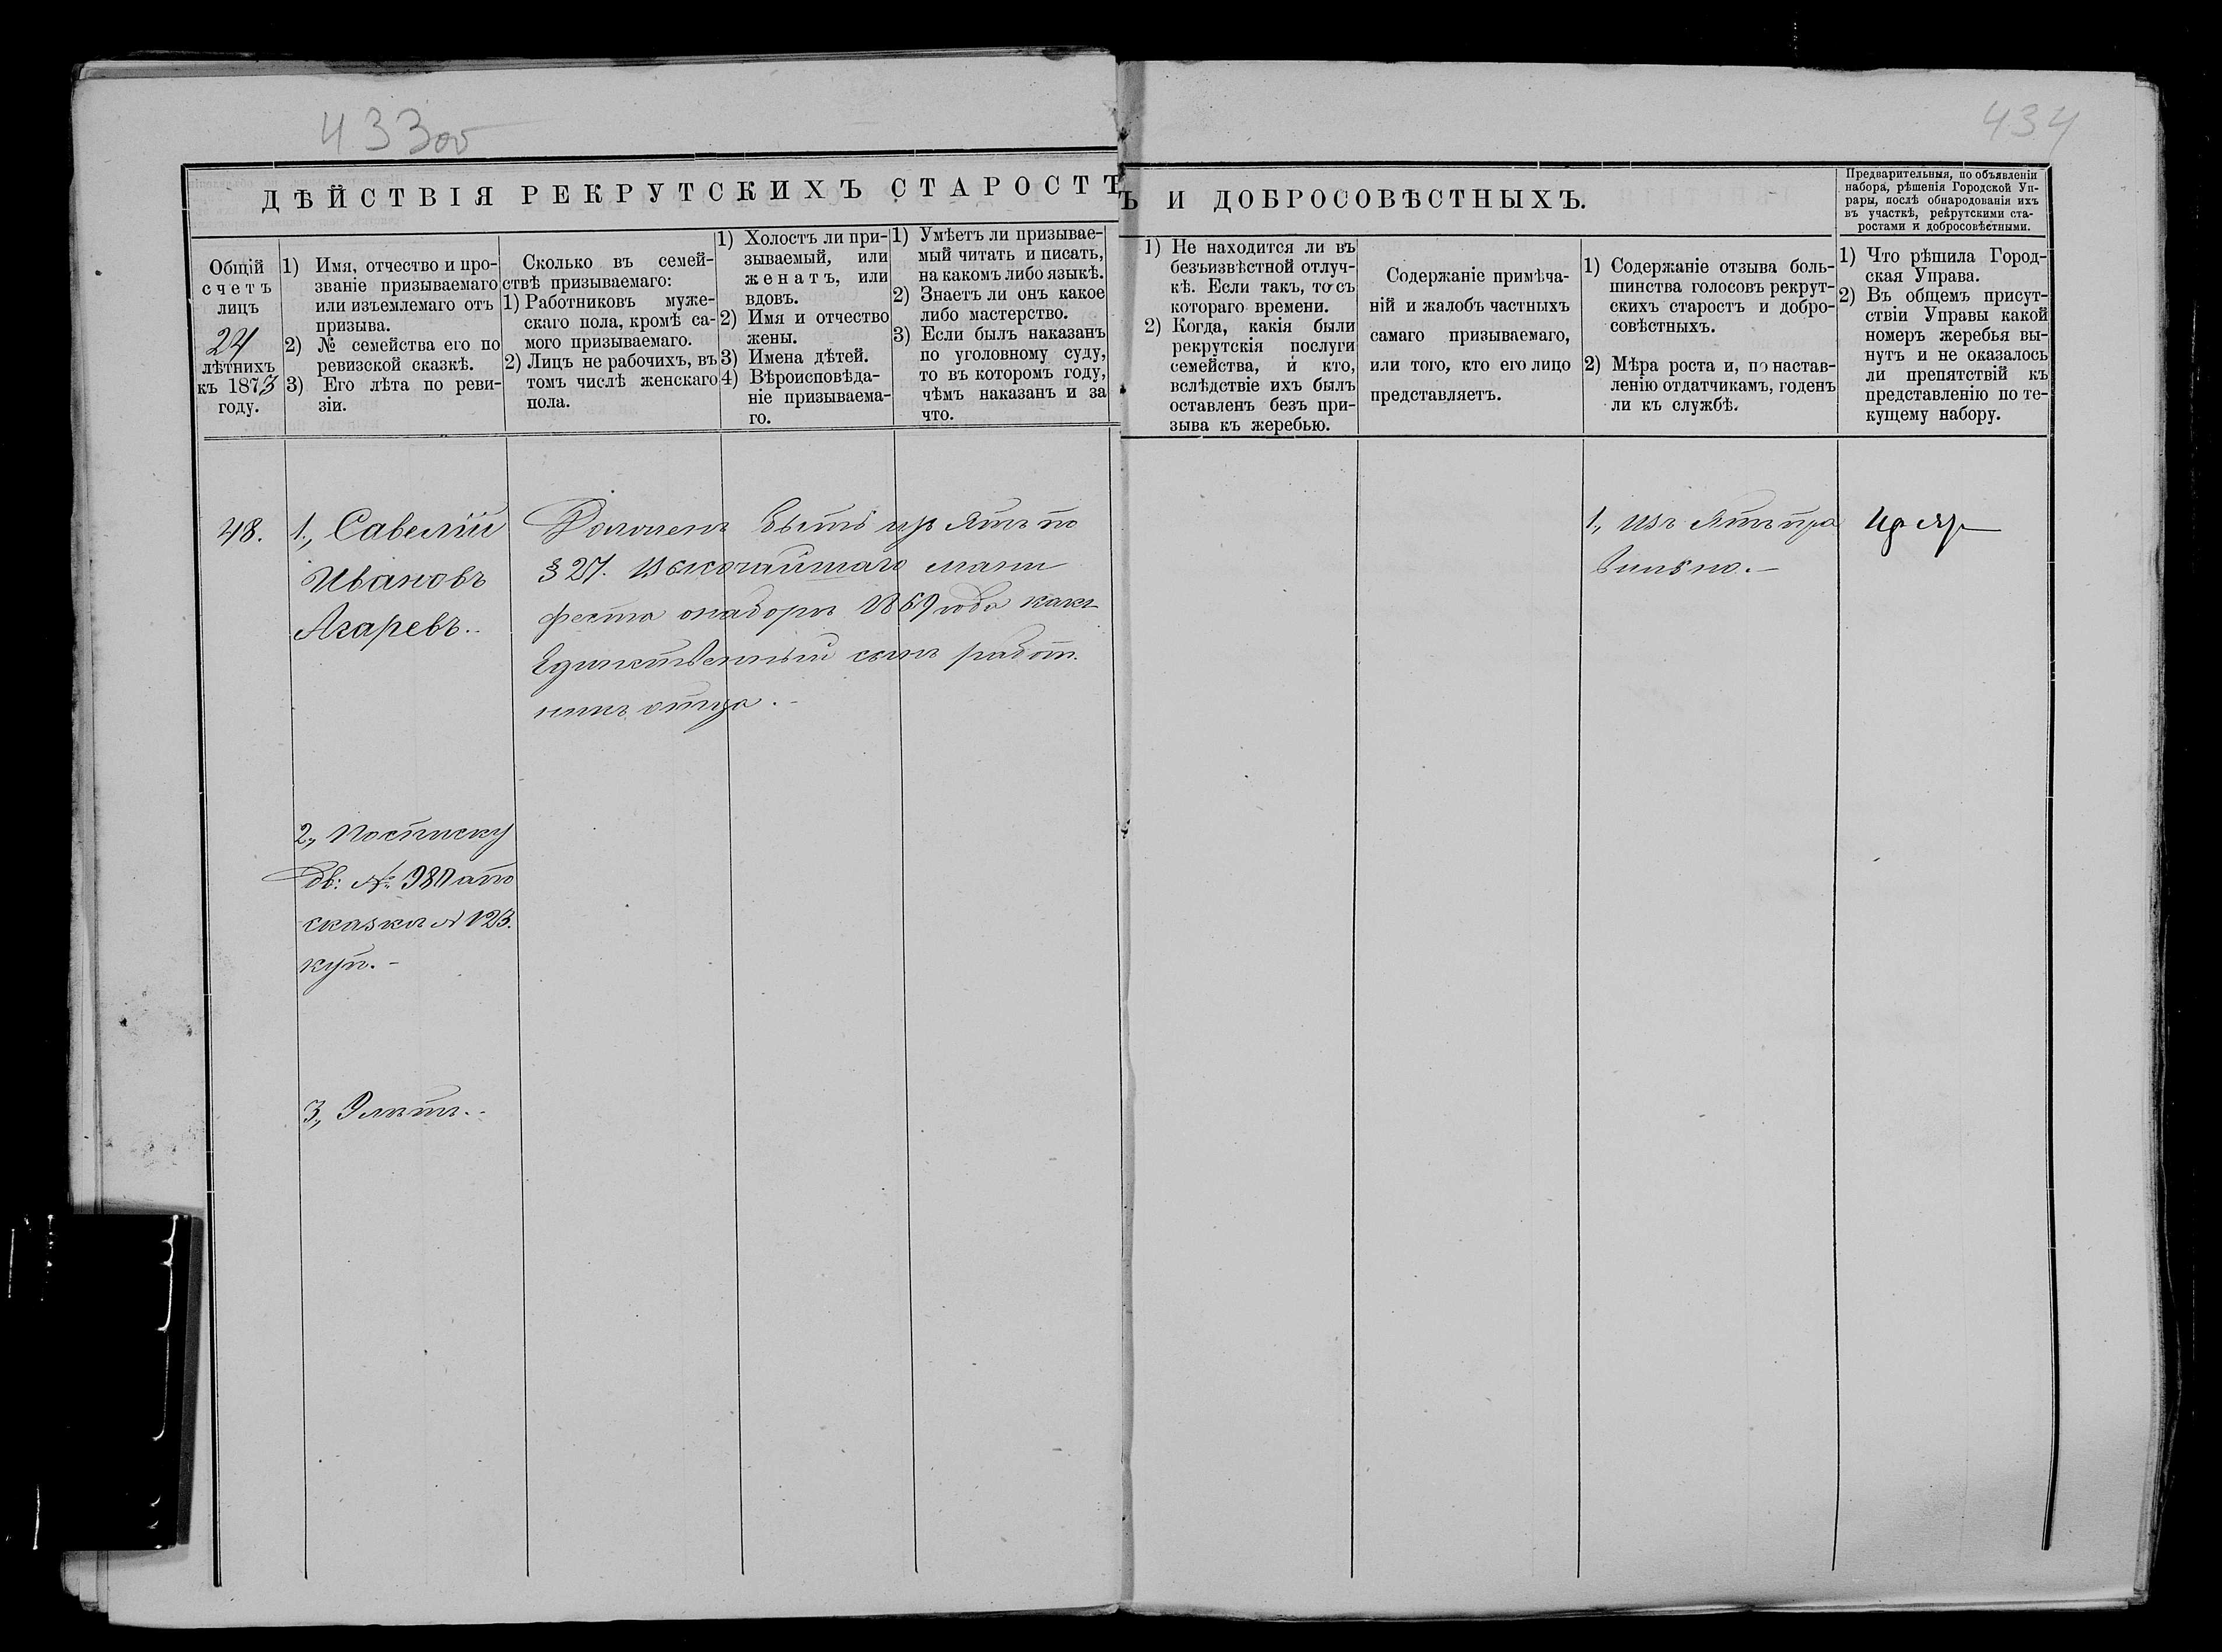 433 об
434
ДѢЙСТВІЯ РЕКРУТСКИХЪ СТАРОСТЪ
Ъ И ДОБРОСОВѢСТНЫХЪ.
Предварительныя, по объявленіи
набора, рѣшенія Городской Уп-
рары, послѣ обнародованія ихъ
въ участкѣ, рекрутскими ста-
ростами и добросовѣстными.
Общій
счетъ
лицъ
24
лѣтнихъ
къ 1873
году.
1) Имя, отчество и про-
званіе призываемаго
или изъемлемаго отъ
призыва.
2) № семейства его по
ревизской сказкѣ.
3) Его лѣта по реви-
зіи.
Сколько въ семей-
ствѣ призываемаго:
1) Работниковъ муже-
скаго пола, кромѣ са-
мого призываемаго.
2) Лицъ не рабочихъ, въ
томъ числѣ женскаго
пола.
1) Холостъ ли при-
зываемый, или
женатъ, или
вдовъ.
2) Имя и отчество
жены.
3) Имена дѣтей.
4) Вѣроисповѣда-
ніе призываема-
го.
1) Умѣетъ ли призывае-
мый читать и писать,
на какомъ либо языкѣ.
2) Знаетъ ли онъ какое
либо мастерство.
3) Если былъ наказанъ
по уголовному суду,
то въ которомъ году,
чѣмъ наказанъ и за
что.
1) Не находится ли въ
безъизвѣстной отлуч-
кѣ. Если такъ, то съ
котораго времени.
2) Когда, какія были
рекрутскія послуги
семейства, и кто,
вслѣдствіе ихъ былъ
оставленъ безъ при-
зыва къ жеребью.
Содержаніе примѣча-
ній и жалобъ частныхъ
самаго призываемаго,
или того, кто его лицо
представляетъ.
1) Содержаніе отзыва боль-
шинства голосовъ рекрут-
скихъ старостъ и добро-
совѣстныхъ.
2) Мѣра роста и, по настав-
ленію отдатчикамъ, годенъ
ли къ службѣ.
1) Что рѣшила Город-
ская Управа.
2) Въ общемъ присут-
ствіи Управы какой
номеръ жеребья вы-
нутъ и не оказалось
ли препятствій къ
представленію по те-
кущему набору.
48.
1., Савелій
Ивановъ
Агаревъ.
Долженъ быть изъятъ по
§ 27. Высочайшаго мани
феста о наборѣ 1869 года какъ
Единственный сынъ работ.
никъ отца.
1., Изъ Ятъ пра
вильно.
2., По списку
Дв: № 980 а по
сказкѣ № 123.
куп.
3., 9 лѣтъ.